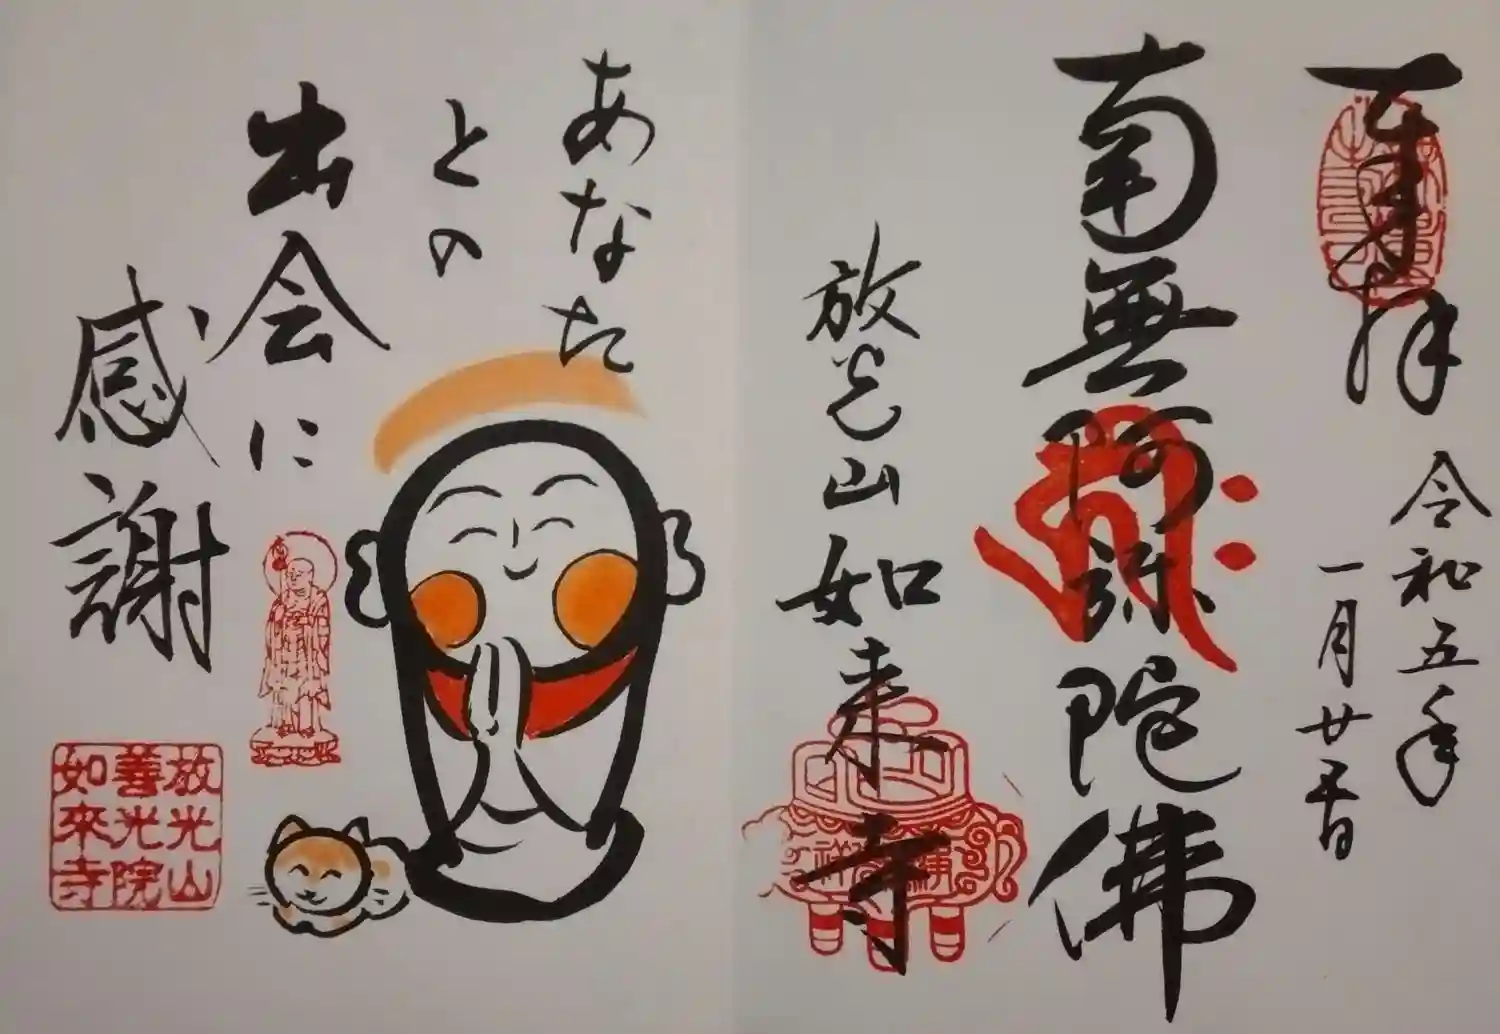 奉拝
令和五年
一月廿五日
南無阿弥陀佛
放光山如来寺
あなた
との
出会に
感謝
放光山
善光院
如來寺